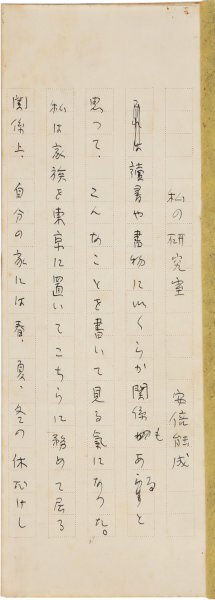 私の研究室　安倍能成
は讀書や書物にいくらか関係もあると
思つて、こんなことを書いて見る氣になつた。
私は家族を東京に置いてこちらに務めて居る
関係上、自分の家には春、夏、冬の休むけし